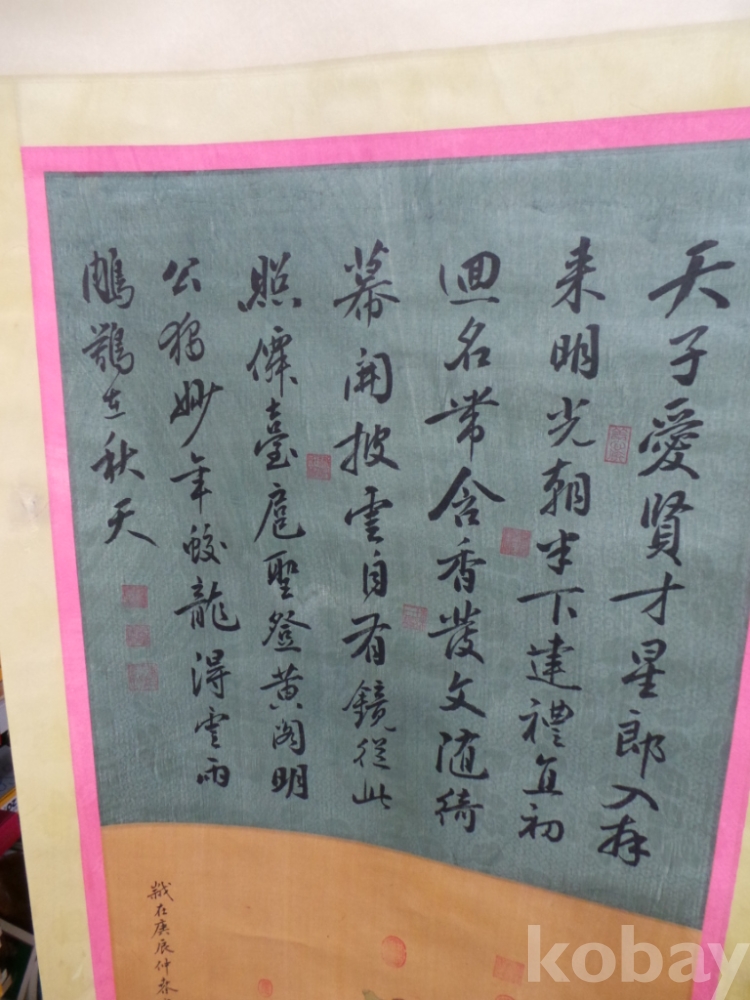 天子愛賢才星郎入拜
来明光朝半下建禮直初
迴名常含香發文随綺
幕開披雲自有鏡從此
照僚臺扈聖登黄閣明
公獨妙年蛟龍得雲雨
鵰鶚在秋天
歲在庚辰仲春
kobay